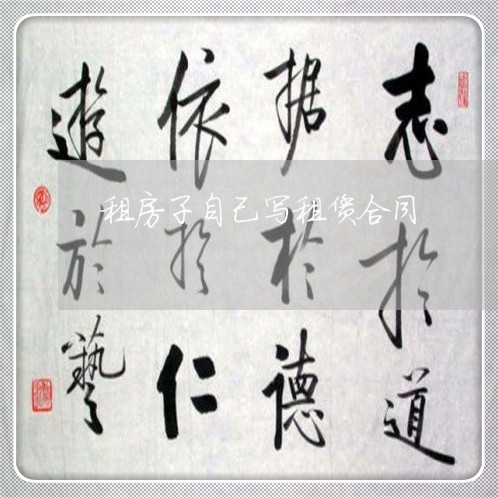 志扵道
据扵德
依扵仁
遊於藝
租房子自己写租赁合同